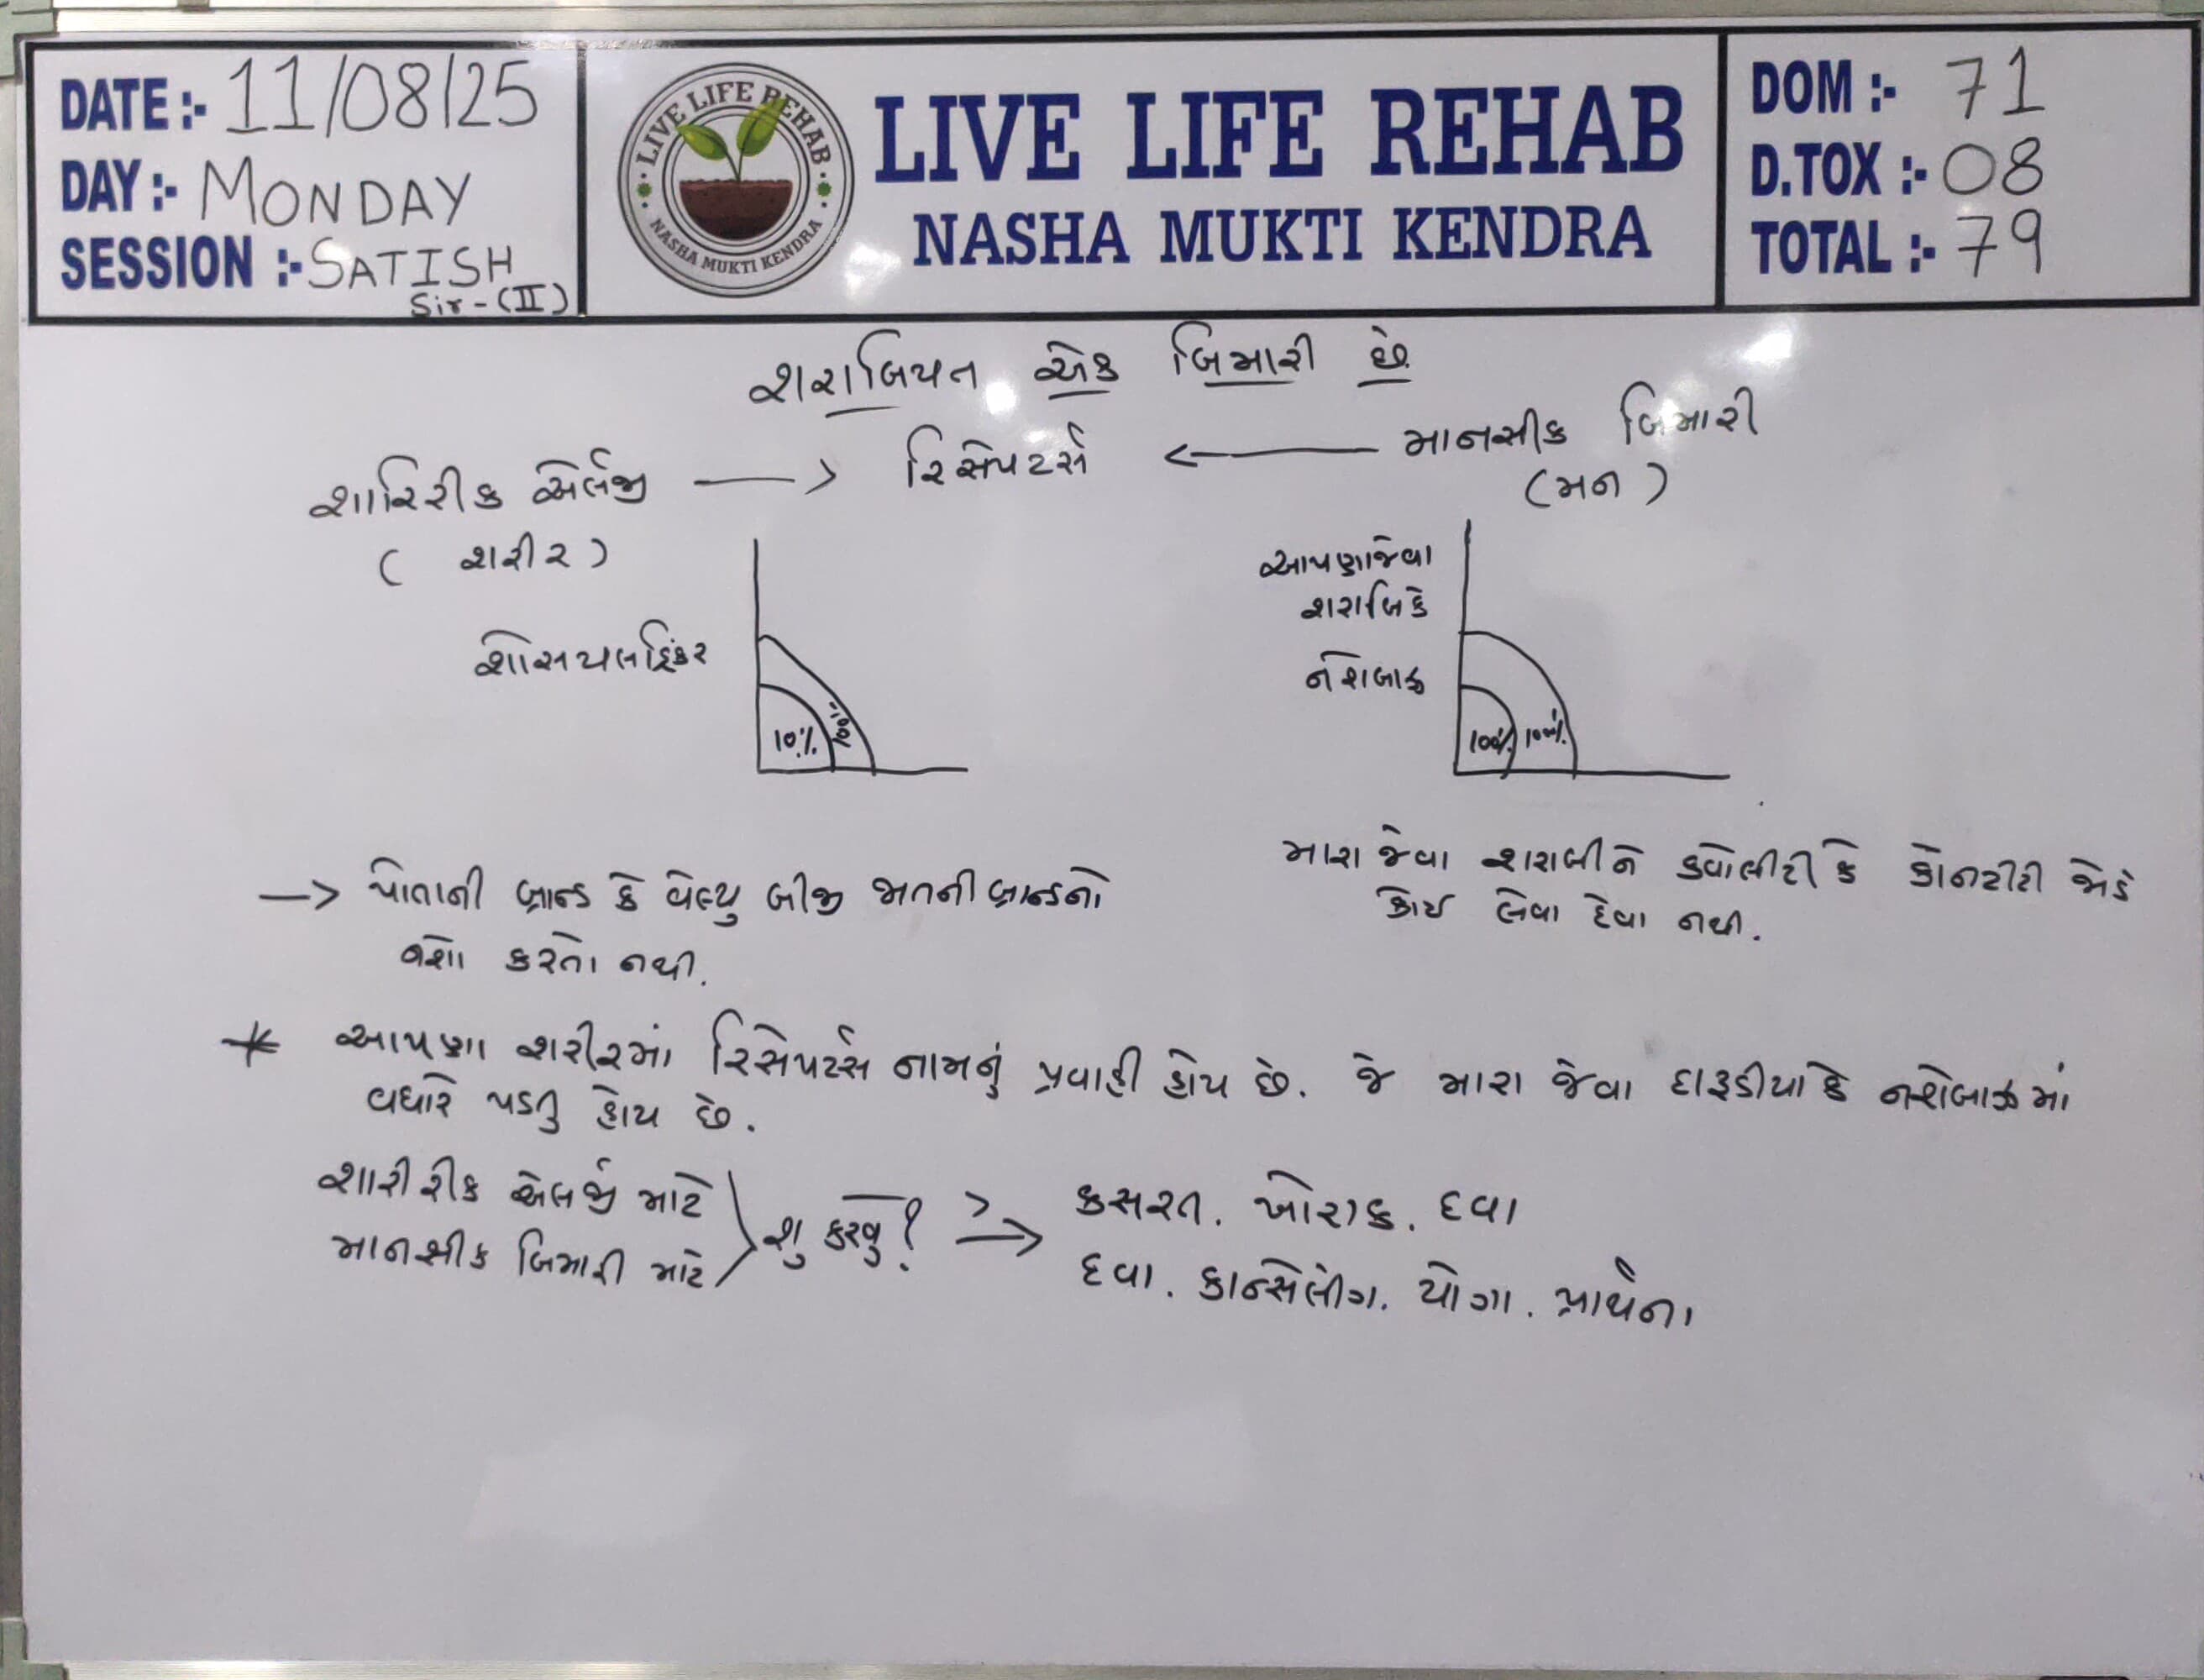 DATE :- 11/08/25
DAY :- MONDAY
SESSION :- SATISH
Sir-(II)
LIVE LIFE REHAB
NASHA MUKTI KENDRA
LIVE LIFE REHAB
NASHA MUKTI KENDRA
DOM :- 71
D.TOX :- 08
TOTAL :- 79
શરાબિપન એક બિમારી છે
શારિરીક એર્લજી → રિસેપટર્સ ← માનસીક બિમારી
( શરીર )
(મન)
શોસયલડ્રિંકર
10%
આપણાજેવા
શરાબિ કે
નશેબાઝ
100% 100%
→ પોતાની બ્રાન્ડ કે વેલ્યુ બીજી જાતની બ્રાન્ડનો
નશો કરતો નથી.
મારા જેવા શરાબીને કવોલીટી કે કોનટીટી જોડે
કોઈ લેવા દેવા નથી.
* આપણા શરીરમાં રિસેપર્ટસ નામનું પ્રવાહી હોય છે. જે મારા જેવા દારૂડીયા કે નશેબાઝ માં
વધારે પડતુ હોય છે.
શારીરીક એલર્જી માટે
માનસીક બિમારી માટે
શુ કરવુ? ⇒
કસરત. ખોરાક. દવા
દવા. કાન્સેલીગ. યોગા. પ્રાર્થના